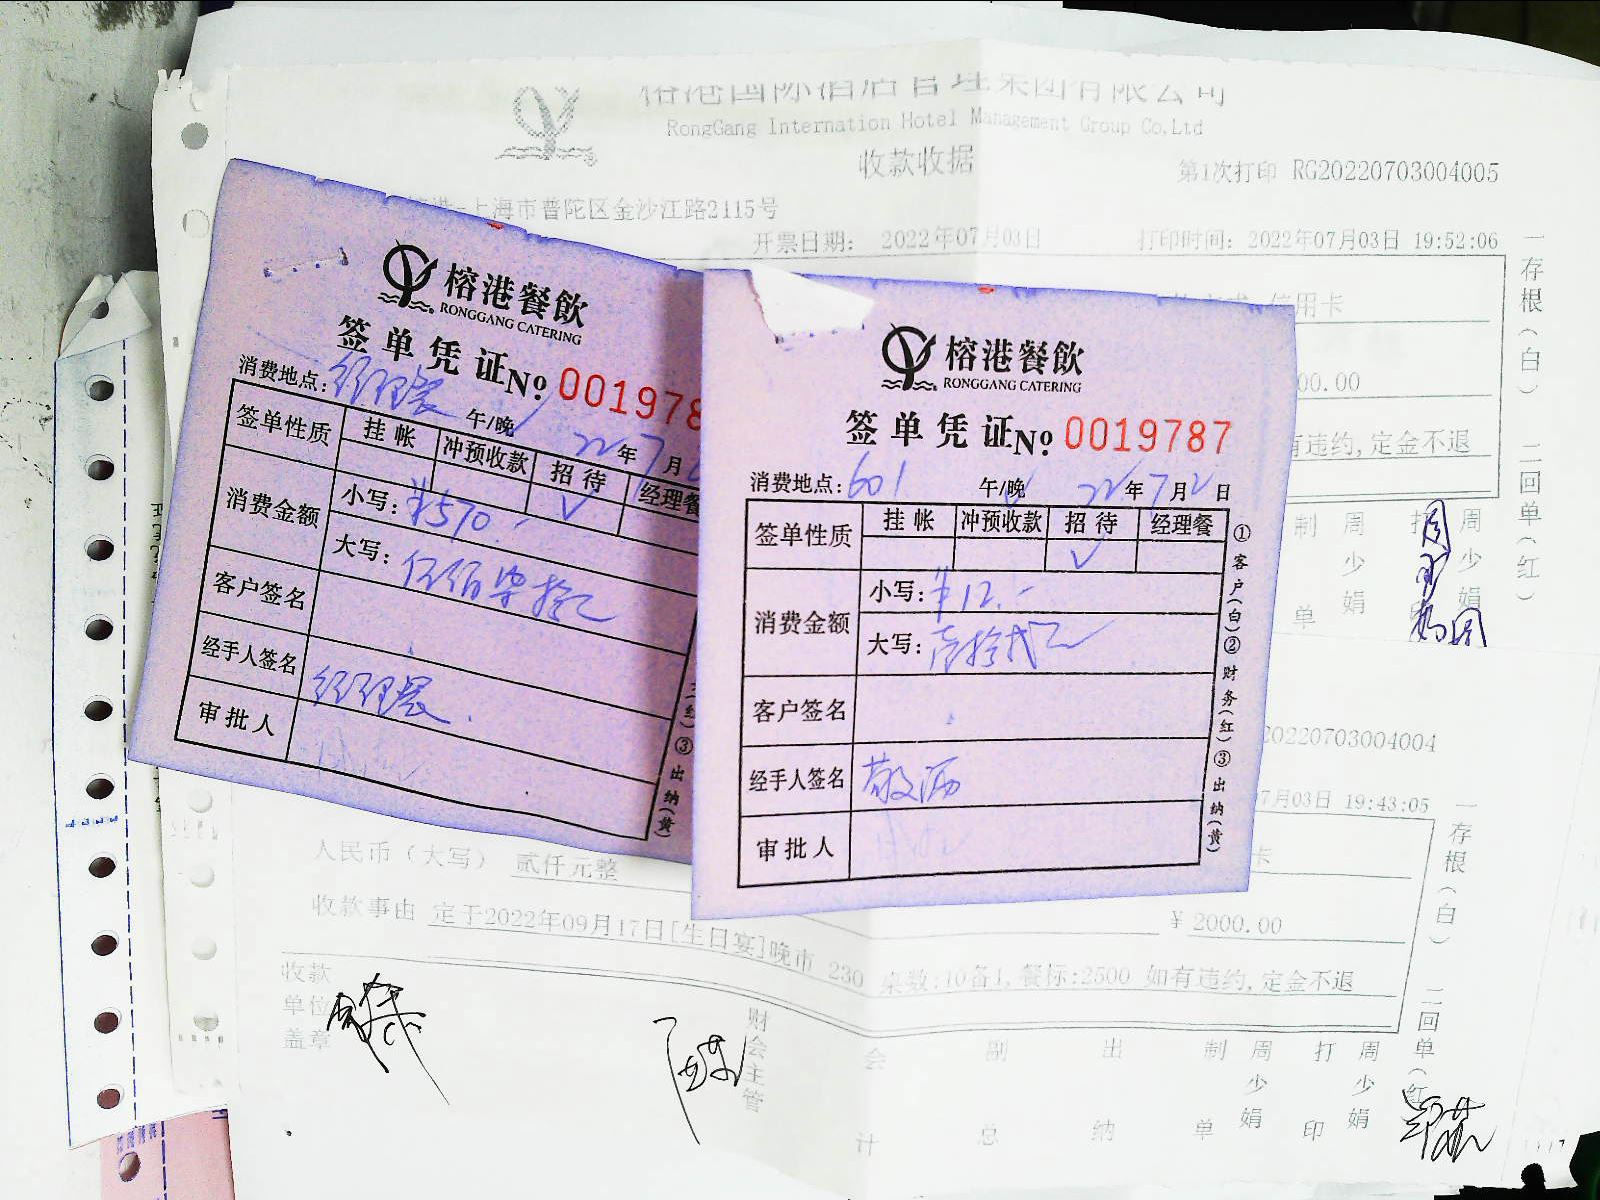 榕港国际酒店管理集团有限公司
RongGang Internation Hotel Management Group Co,Ltd
收款收据
第1次打印 RG20220703004005
上海市普陀区金沙江路2115号
开票日期: 2022年07月03日
打印时间: 2022年07月03日 19:52:06
信用卡
00.00
有违约,定金不退
存根(白) 二回单(红)
制单 周少娟 周少娟
榕港餐飲
RONGGANG CATERING
签单凭证 No. 001978
消费地点:
午/晚 22年7月
签单性质 挂帐 冲预收款 招待 经理餐
√
消费金额 小写: ¥570.-
大写: 伍佰柒拾元
客户签名
经手人签名
审批人
③出纳(黄)
榕港餐飲
RONGGANG CATERING
签单凭证 No. 0019787
消费地点: 601 午/晚 22年7月2日
签单性质 挂帐 冲预收款 招待 经理餐
√
消费金额 小写: ¥12.-
大写: 壹拾贰元
客户签名
经手人签名
审批人
①客户(白)②财务(红)③出纳(黄)
20220703004004
7月03日 19:43:05
卡
人民币(大写) 贰仟元整
¥ 2000.00
收款事由 定于2022年09月17日[生日宴]晚市 230 桌数:10备1,餐标:2500 如有违约,定金不退
存根(白) 二回单(红)
收款单位盖章
财会主管
会计
副总
出纳
制单 周少娟
打印 周少娟